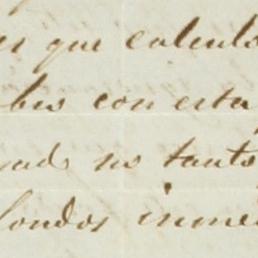 que calculo
con esta
no tanto
fondos inme